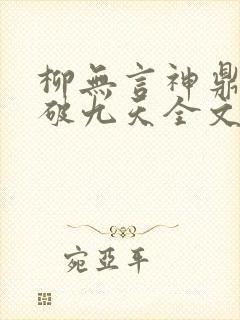 柳無言神鼎
破九天全文
宛亞平